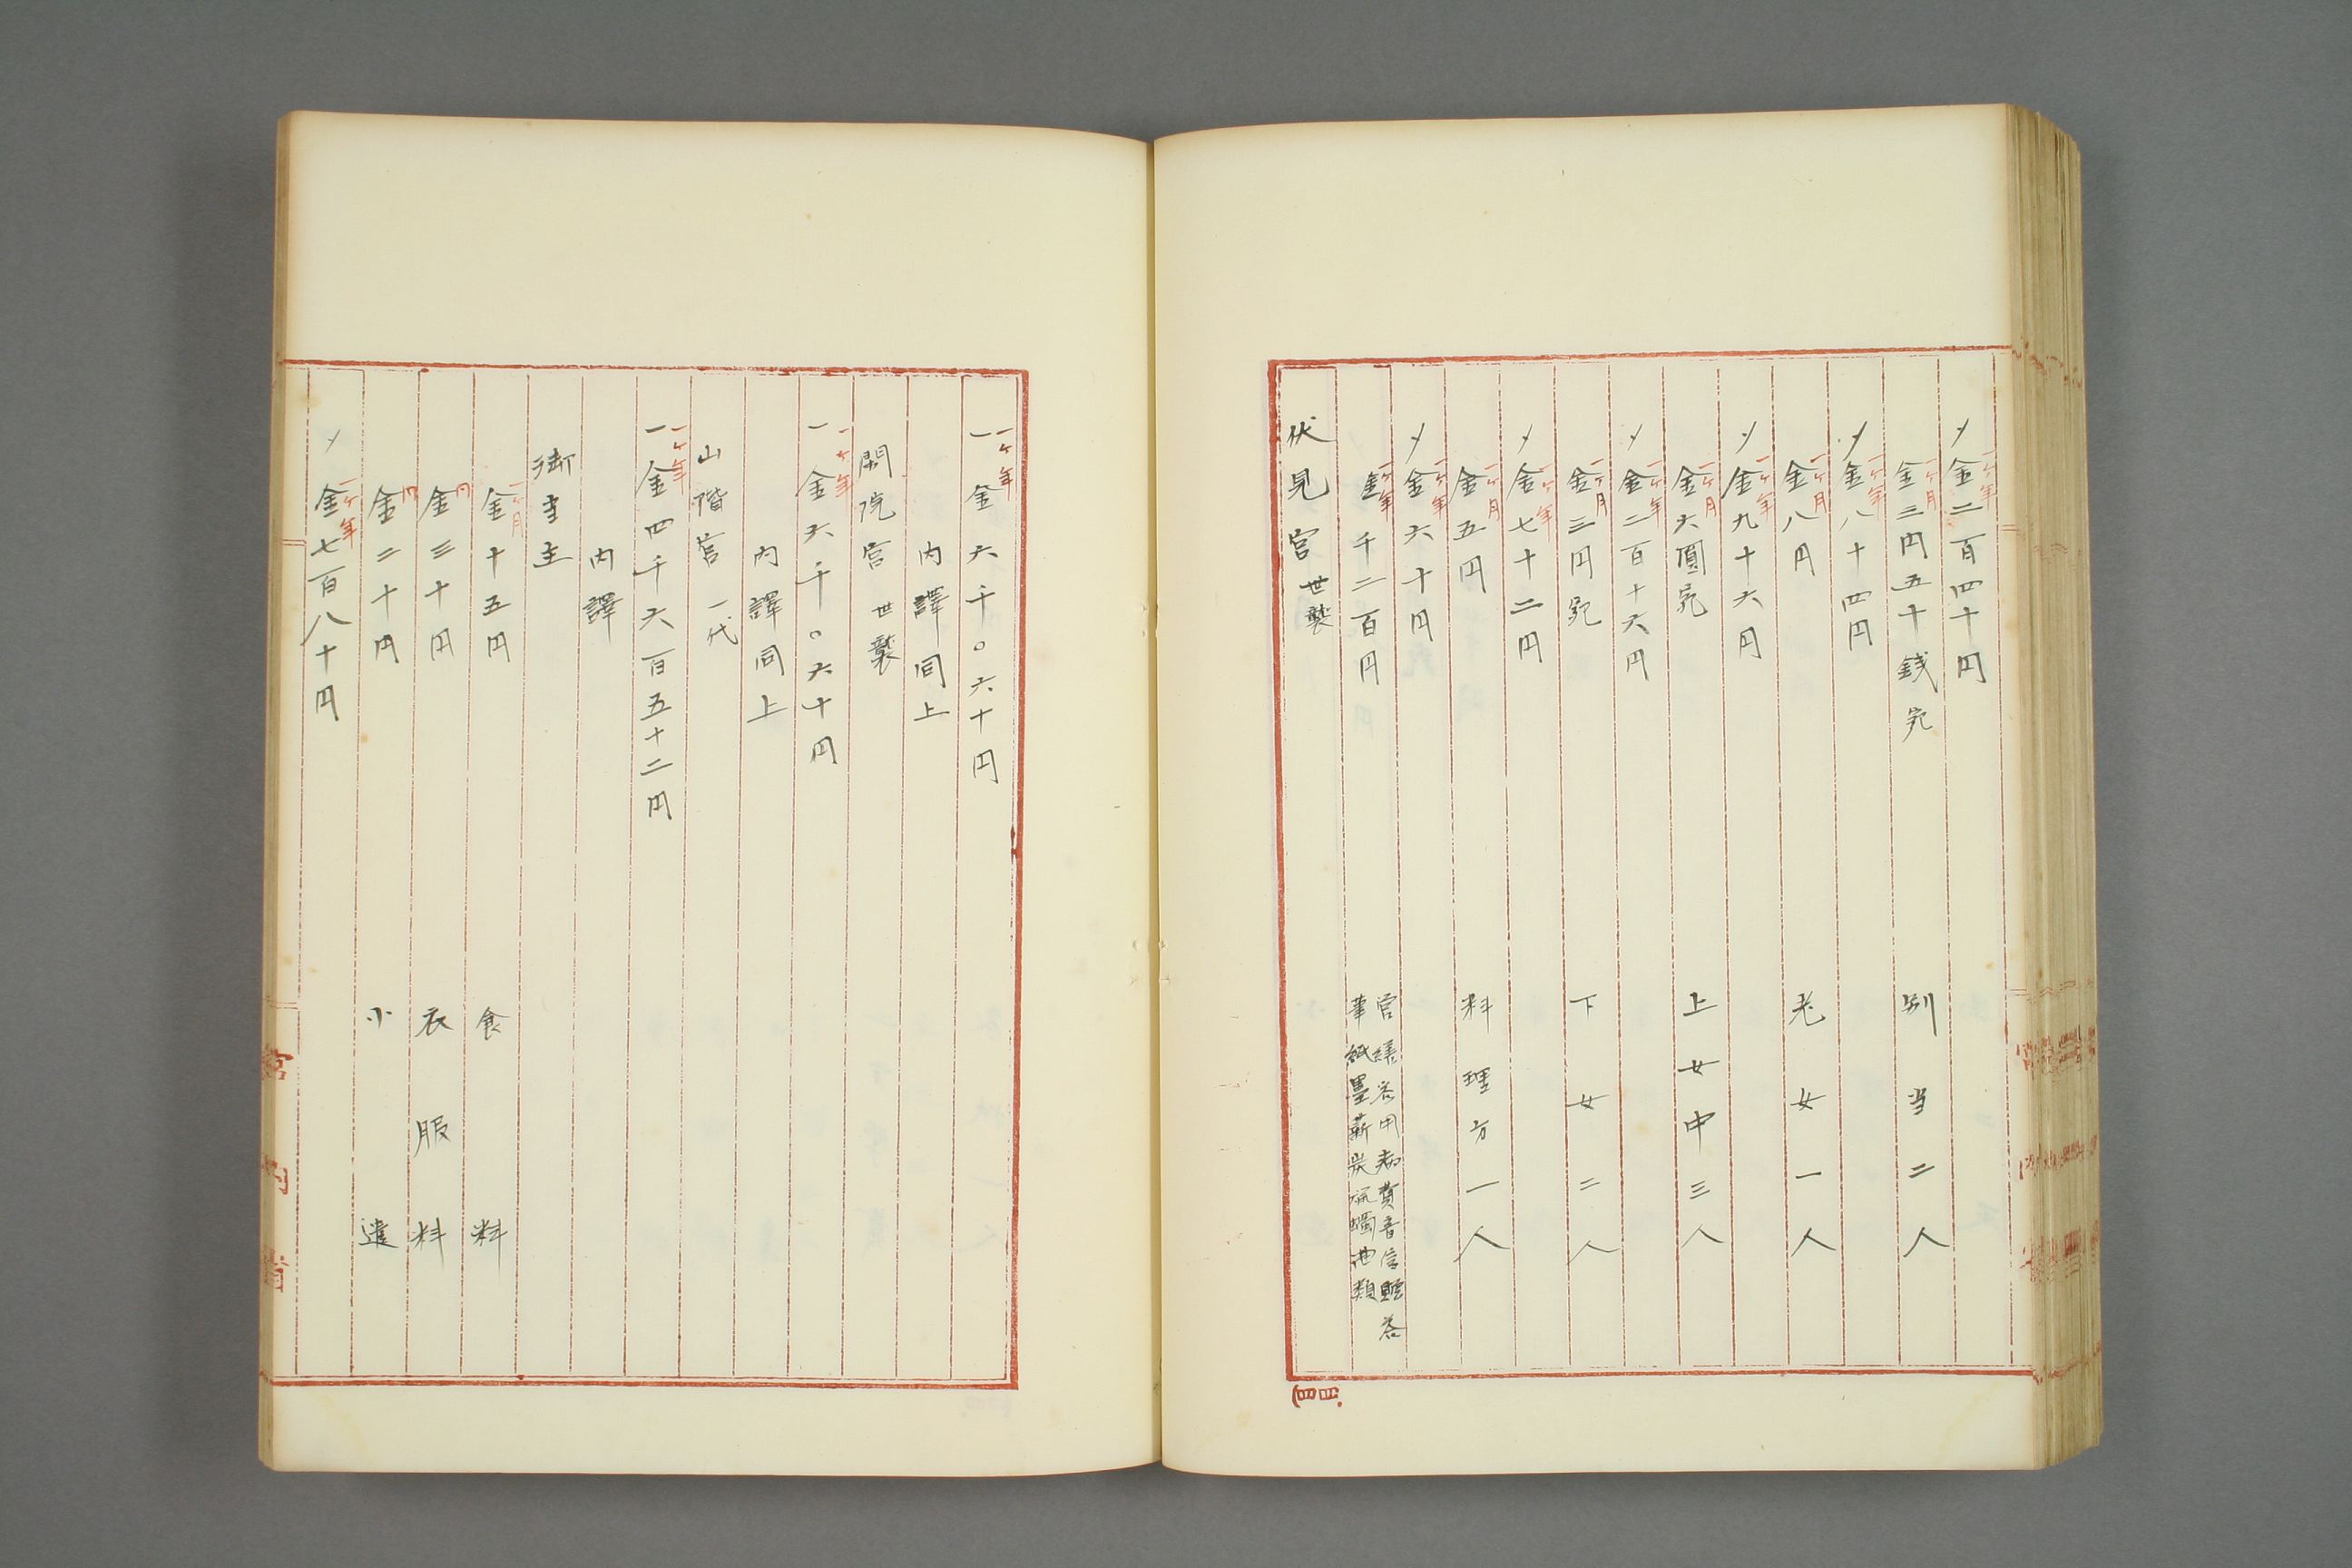 〆金一ケ年二百四十円
金一ケ月三円五十銭宛 別当二人
〆金一ケ年八十四円
金一ケ月八円 老女一人
〆金一ケ年九十六円
金一ケ月六圓宛 上女中三人
〆金一ケ年二百十六円
金一ケ月三円宛 下女二人
〆金一ケ年七十二円
金一ケ月五円 料理方一人
〆金一ケ年六十円
金一ケ年千二百円
営繕客用病費音信贈答
筆紙墨薪炭油蠟油類
伏見宮 世襲
一金一ケ年六千〇六十円
内譯同上
閑院宮 世襲
一金一ケ年六千〇六十円
内譯同上
山階宮 一代
一金一ケ年四千六百五十二円
内譯
御主
金一ケ月十五円 食料
金同三十円 衣服料
金同二十円 小遣
〆金一ケ年七百八十円
宮内省